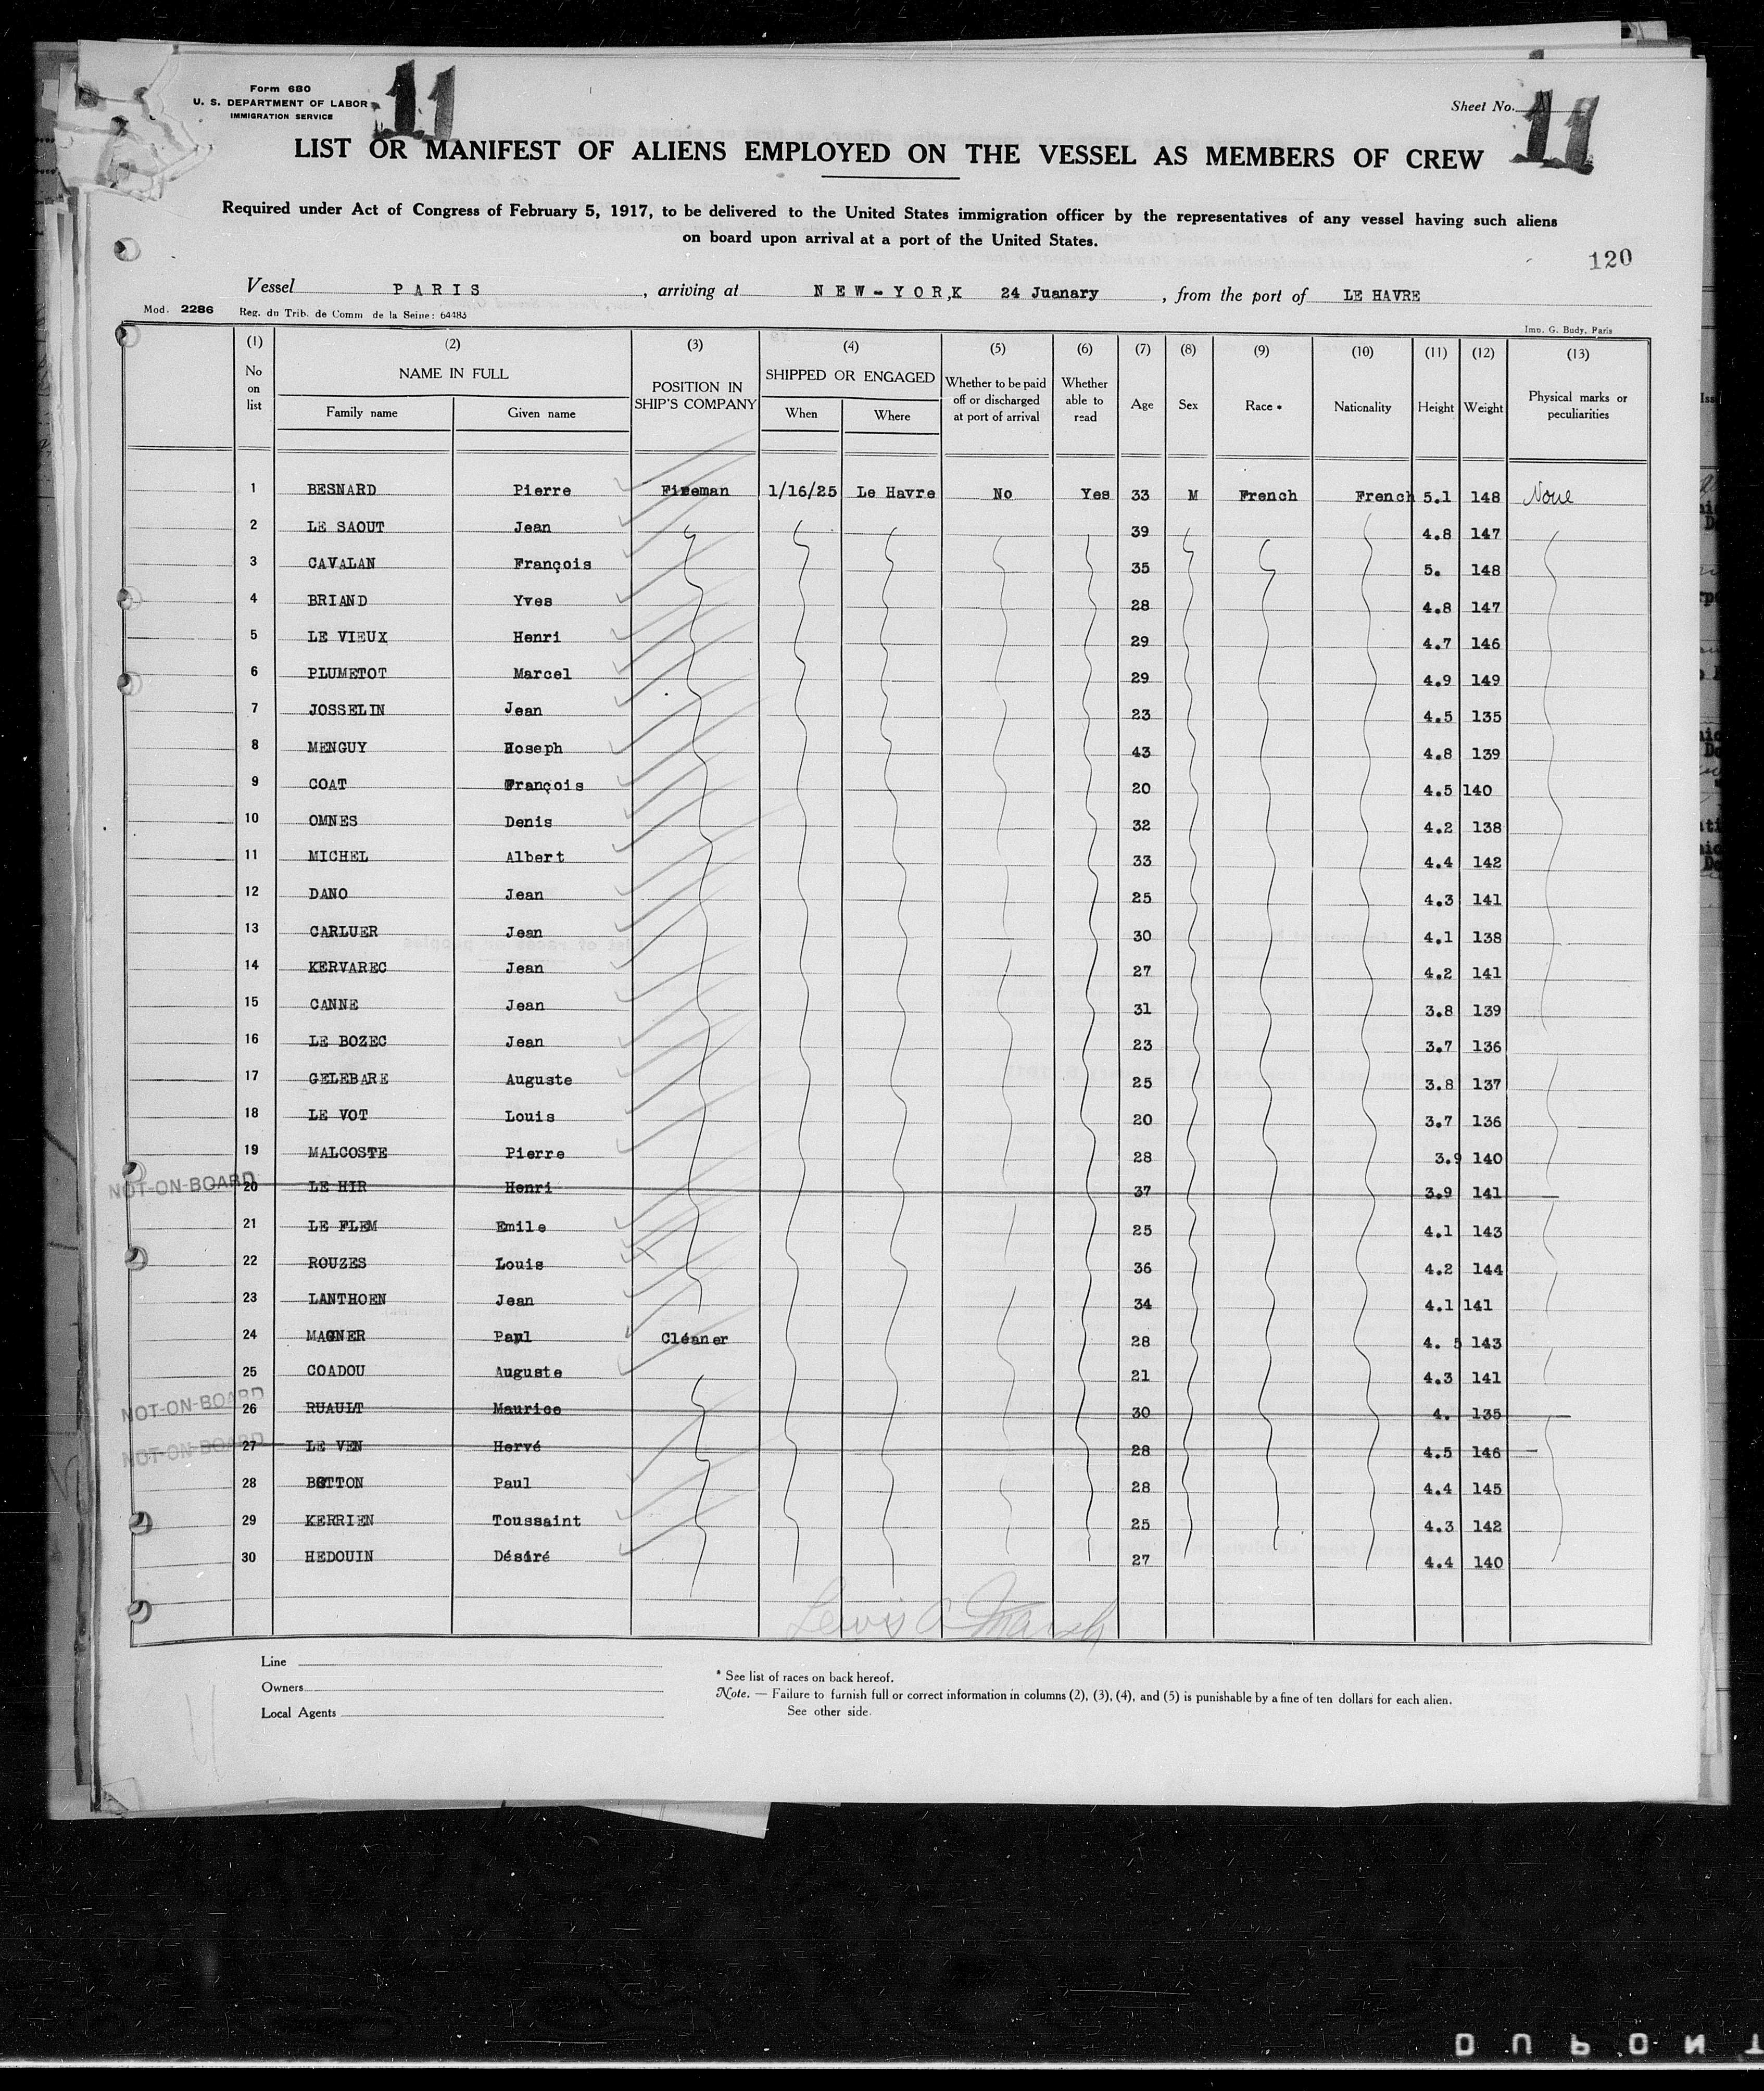 Form 680
U. S. DEPARTMENT OF LABOR
IMMIGRATION SERVICE
11
Sheet No.
11
LIST OR MANIFEST OF ALIENS EMPLOYED ON THE VESSEL AS MEMBERS OF CREW
Required under Act of Congress of February 5, 1917, to be delivered to the United States immigration officer by the representatives of any vessel having such aliens
on board upon arrival at a port of the United States.
120
Vessel PARIS, arriving at NEW-YORK, 24 Juanary, from the port of LE HAVRE
Mod. 2286 Reg. du Trib. de Comm de la Seine: 64483
Imp. G. Budy, Paris
(1) (2) (3) (4) (5) (6) (7) (8) (9) (10) (11) (12) (13)
No on list NAME IN FULL Family name Given name POSITION IN SHIP'S COMPANY SHIPPED OR ENGAGED When Where Whether to be paid off or discharged at port of arrival Whether able to read Age Sex Race * Nationality Height Weight Physical marks or peculiarities
1 BESNARD Pierre Fireman 1/16/25 Le Havre No Yes 33 M French French 5.1 148 None
2 LE SAOUT Jean 39 4.8 147
3 CAVALAN François 35 5. 148
4 BRIAND Yves 28 4.8 147
5 LE VIEUX Henri 29 4.7 146
6 PLUMETOT Marcel 29 4.9 149
7 JOSSELIN Jean 23 4.5 135
8 MENGUY Hoseph 43 4.8 139
9 COAT François 20 4.5 140
10 OMNES Denis 32 4.2 138
11 MICHEL Albert 33 4.4 142
12 DANO Jean 25 4.3 141
13 CARLUER Jean 30 4.1 138
14 KERVAREC Jean 27 4.2 141
15 CANNE Jean 31 3.8 139
16 LE BOZEC Jean 23 3.7 136
17 GELEBARE Auguste 25 3.8 137
18 LE VOT Louis 20 3.7 136
19 MALCOSTE Pierre 28 3.9 140
NOT-ON-BOARD 20 LE HIR Henri 37 3.9 141
21 LE FLEM Emile 25 4.1 143
22 ROUZES Louis 36 4.2 144
23 LANTHOEN Jean 34 4.1 141
24 MAGNER Paul Cléaner 28 4. 5 143
25 COADOU Auguste 21 4.3 141
NOT-ON-BOARD 26 RUAULT Maurice 30 4. 135
NOT-ON-BOARD 27 LE VEN Hervé 28 4.5 146
28 BOTTON Paul 28 4.4 145
29 KERRIEN Toussaint 25 4.3 142
30 HEDOUIN Désiré 27 4.4 140
Lewis C Marsh
Line
Owners
Local Agents
* See list of races on back hereof.
Note. — Failure to furnish full or correct information in columns (2), (3), (4), and (5) is punishable by a fine of ten dollars for each alien.
See other side.
DUPONT